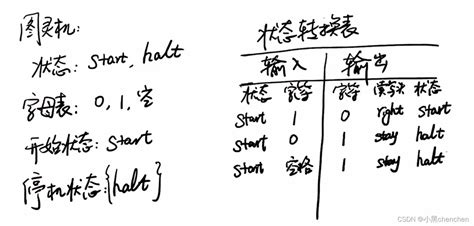 图灵机:
状态: start, halt
字母表: 0, 1, 空
开始状态: start
停机状态:{halt}
状态转换表
输入 输出
状态 字符 字符 读写头 状态
start 1 0 right start
start 0 1 stay halt
start 空格 1 stay halt
CSDN @小凤chenchen